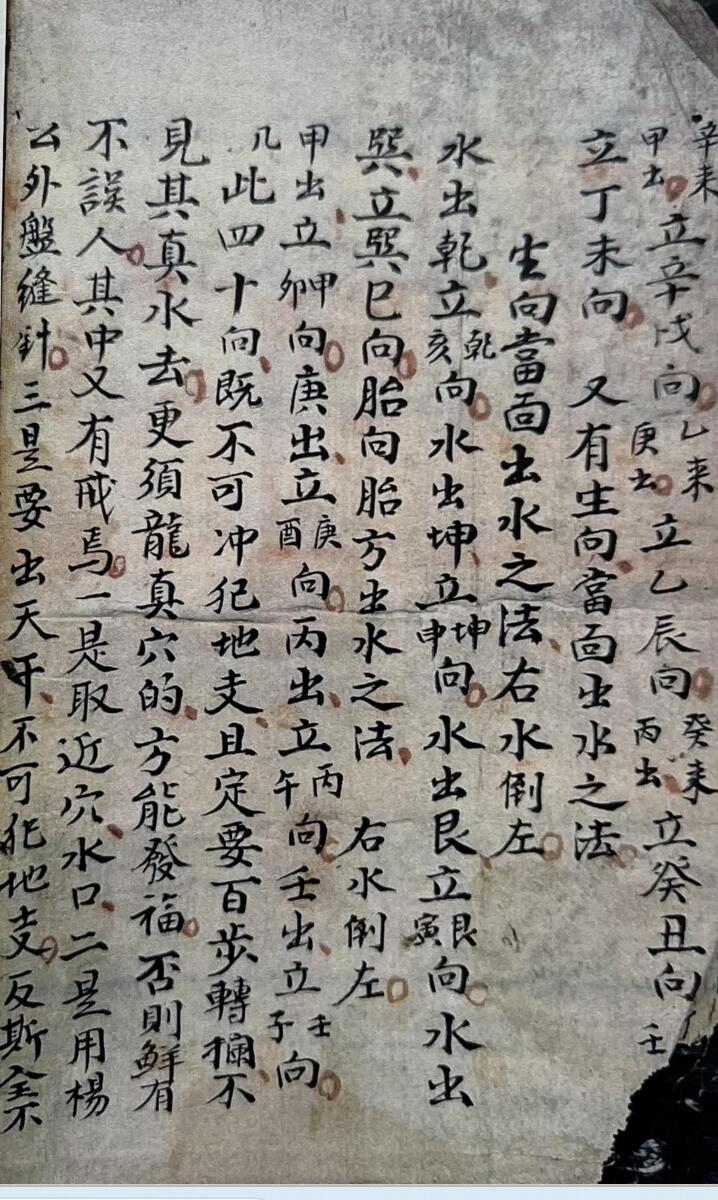 辛来甲出立辛戌向乙来庚出立乙辰向癸来丙出立癸丑向壬
立丁未向 又有生向當面出水之法
生向當面出水之法右水倒左
水出乾立乾亥向水出坤立坤申向水出艮立艮寅向水出
巽立巽巳向胎向胎方出水之法 右水倒左
甲出立甲卯向庚出立庚酉向丙出立丙午向壬出立壬子向
几此四十向既不可冲犯地支且定要百步轉欄不
見其真水去更須龍真穴的方能發福否則鮮有
不誤人其中又有戒焉一是取近穴水口二是用楊
公外盤縫針三是要出天干不可犯地支反斯全不